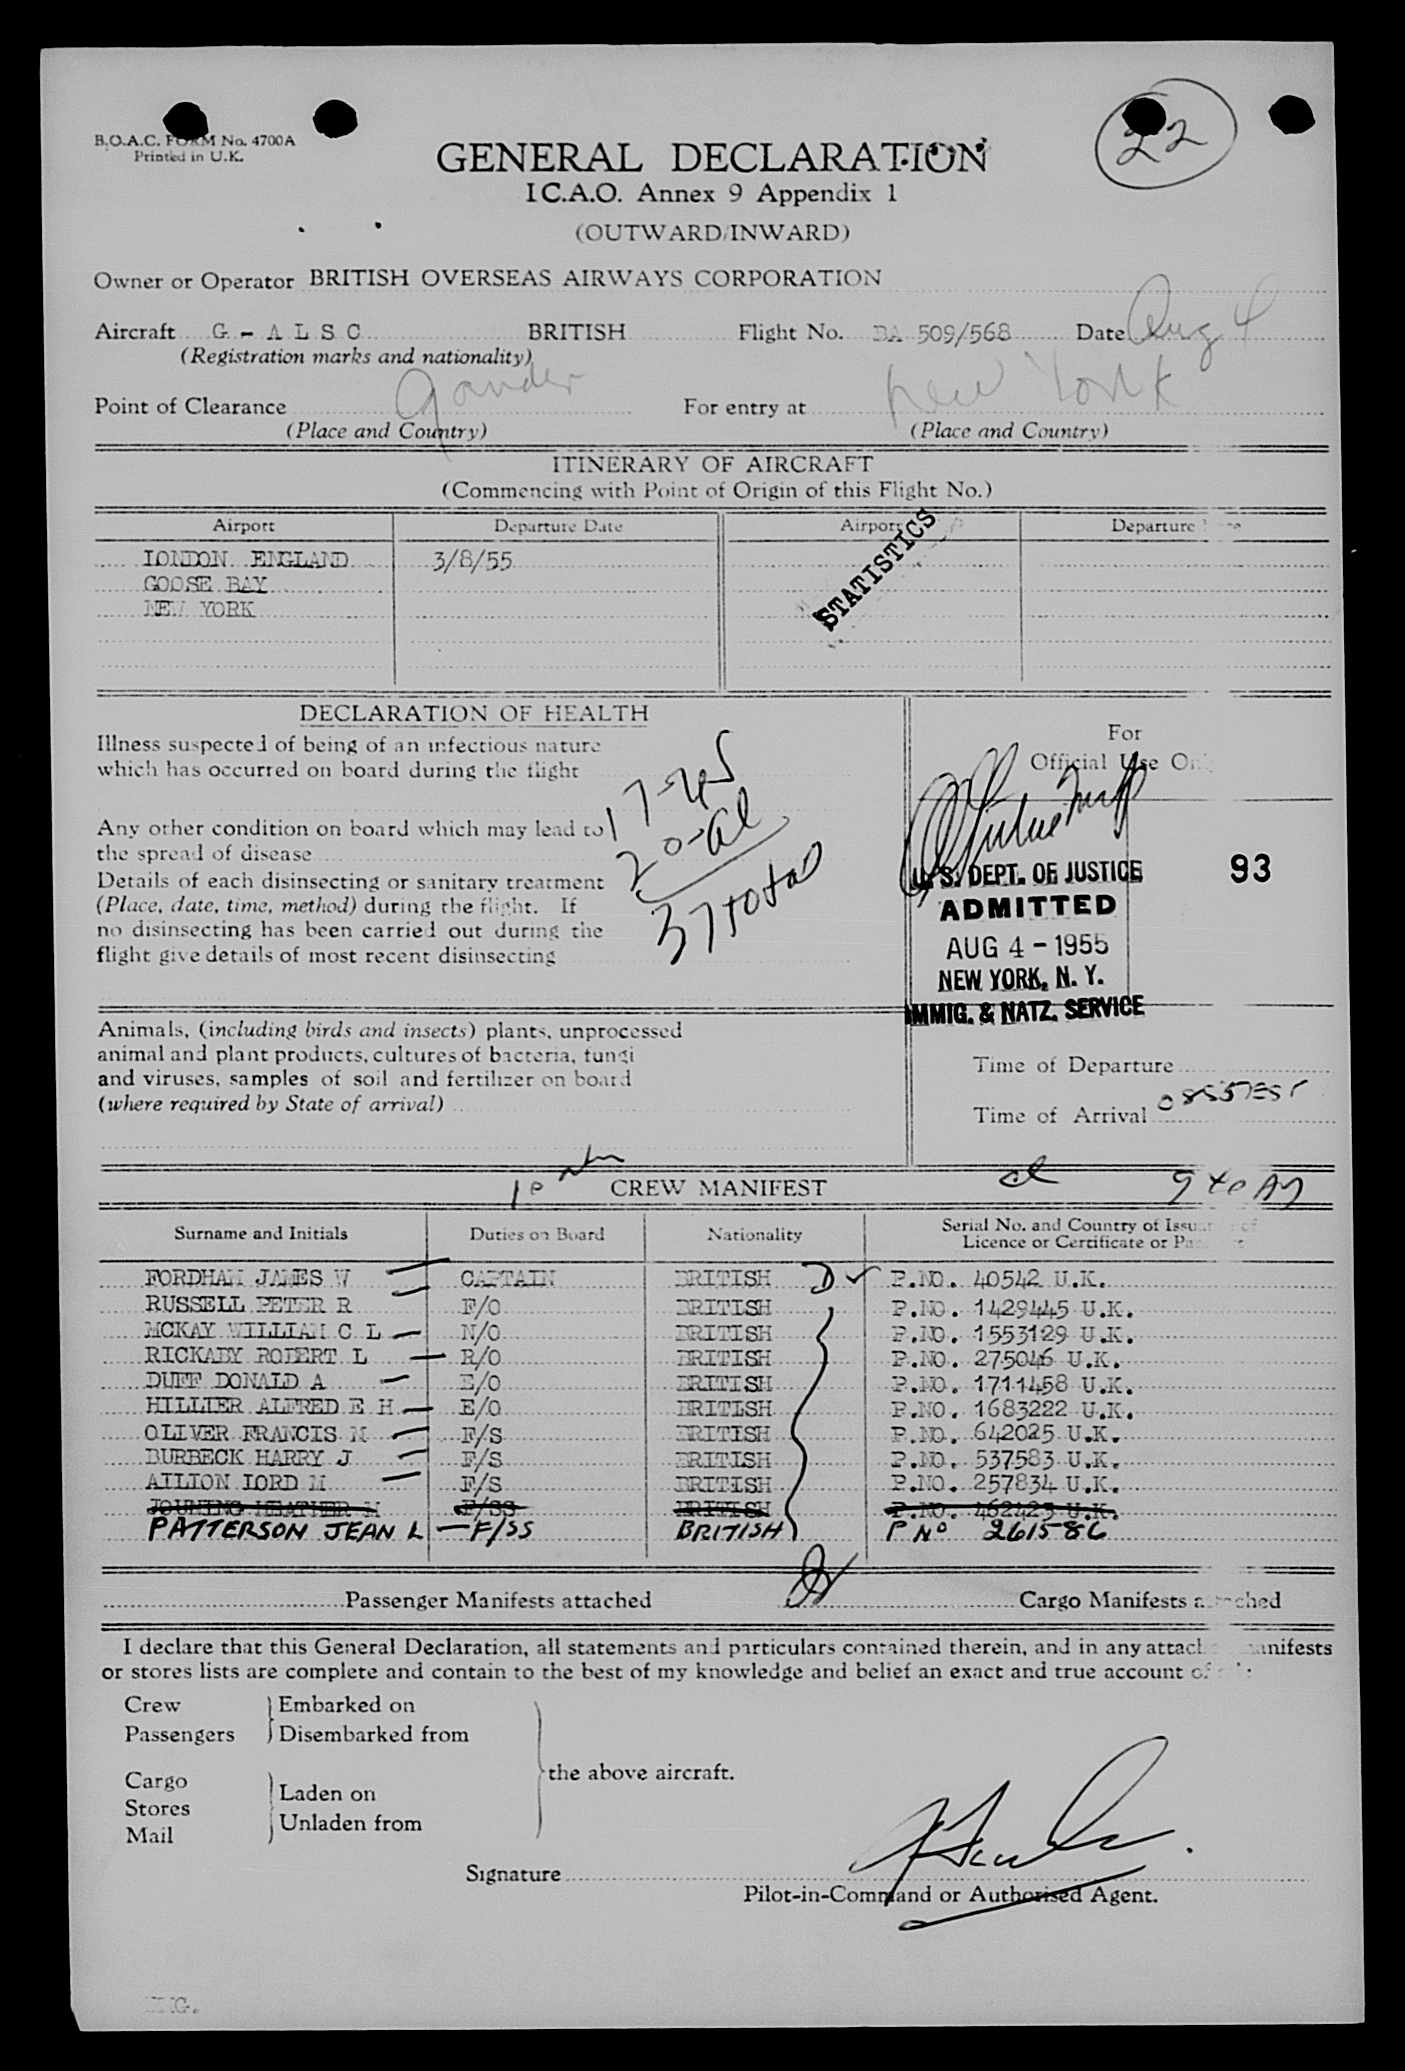 22
B.O.A.C. FORM No. 4700A
Printed in U.K.
GENERAL DECLARATION
I C.A.O. Annex 9 Appendix 1
(OUTWARD/INWARD)
Owner or Operator BRITISH OVERSEAS AIRWAYS CORPORATION
Aircraft G - A L S C BRITISH Flight No. BA 509/568 Date Aug 4
(Registration marks and nationality)
Point of Clearance Gander For entry at New York
(Place and Country) (Place and Country)
ITINERARY OF AIRCRAFT
(Commencing with Point of Origin of this Flight No.)
Airport Departure Date Airport Departure
LONDON ENGLAND 3/8/55
GOOSE BAY
NEW YORK
STATISTICS
DECLARATION OF HEALTH
Illness suspected of being of an infectious nature
which has occurred on board during the flight
Any other condition on board which may lead to
the spread of disease
Details of each disinsecting or sanitary treatment
(Place, date, time, method) during the flight. If
no disinsecting has been carried out during the
flight give details of most recent disinsecting
17-us
20-al
37 total
For
Official Use Only
U. S. DEPT. OF JUSTICE 93
ADMITTED
AUG 4 - 1955
NEW YORK, N. Y.
IMMIG. & NATZ. SERVICE
Animals, (including birds and insects) plants, unprocessed
animal and plant products, cultures of bacteria, fungi
and viruses, samples of soil and fertilizer on board
(where required by State of arrival)
Time of Departure
Time of Arrival 0855 EST
CREW MANIFEST
Surname and Initials Duties on Board Nationality Serial No. and Country of Issue of
Licence or Certificate or Passport
FORDHAM JAMES W CAPTAIN BRITISH D P.NO. 40542 U.K.
RUSSELL PETER R F/O BRITISH P.NO. 1429445 U.K.
MCKAY WILLIAM C L N/O BRITISH P.NO. 1553129 U.K.
RICKABY ROBERT L R/O BRITISH P.NO. 275046 U.K.
DUFF DONALD A E/O BRITISH P.NO. 1711458 U.K.
HILLIER ALFRED E H E/O BRITISH P.NO. 1683222 U.K.
OLIVER FRANCIS M F/S BRITISH P.NO. 642025 U.K.
BURBECK HARRY J F/S BRITISH P.NO. 537583 U.K.
AILION IORD M F/S BRITISH P.NO. 257834 U.K.
HEATHER M F/SS BRITISH P.NO. 462423 U.K.
PATTERSON JEAN L - F/SS BRITISH P No 261586
Passenger Manifests attached Cargo Manifests attached
I declare that this General Declaration, all statements and particulars contained therein, and in any attached manifests
or stores lists are complete and contain to the best of my knowledge and belief an exact and true account of
Crew Embarked on
Passengers Disembarked from
the above aircraft.
Cargo
Stores Laden on
Mail Unladen from
Signature
Pilot-in-Command or Authorised Agent.